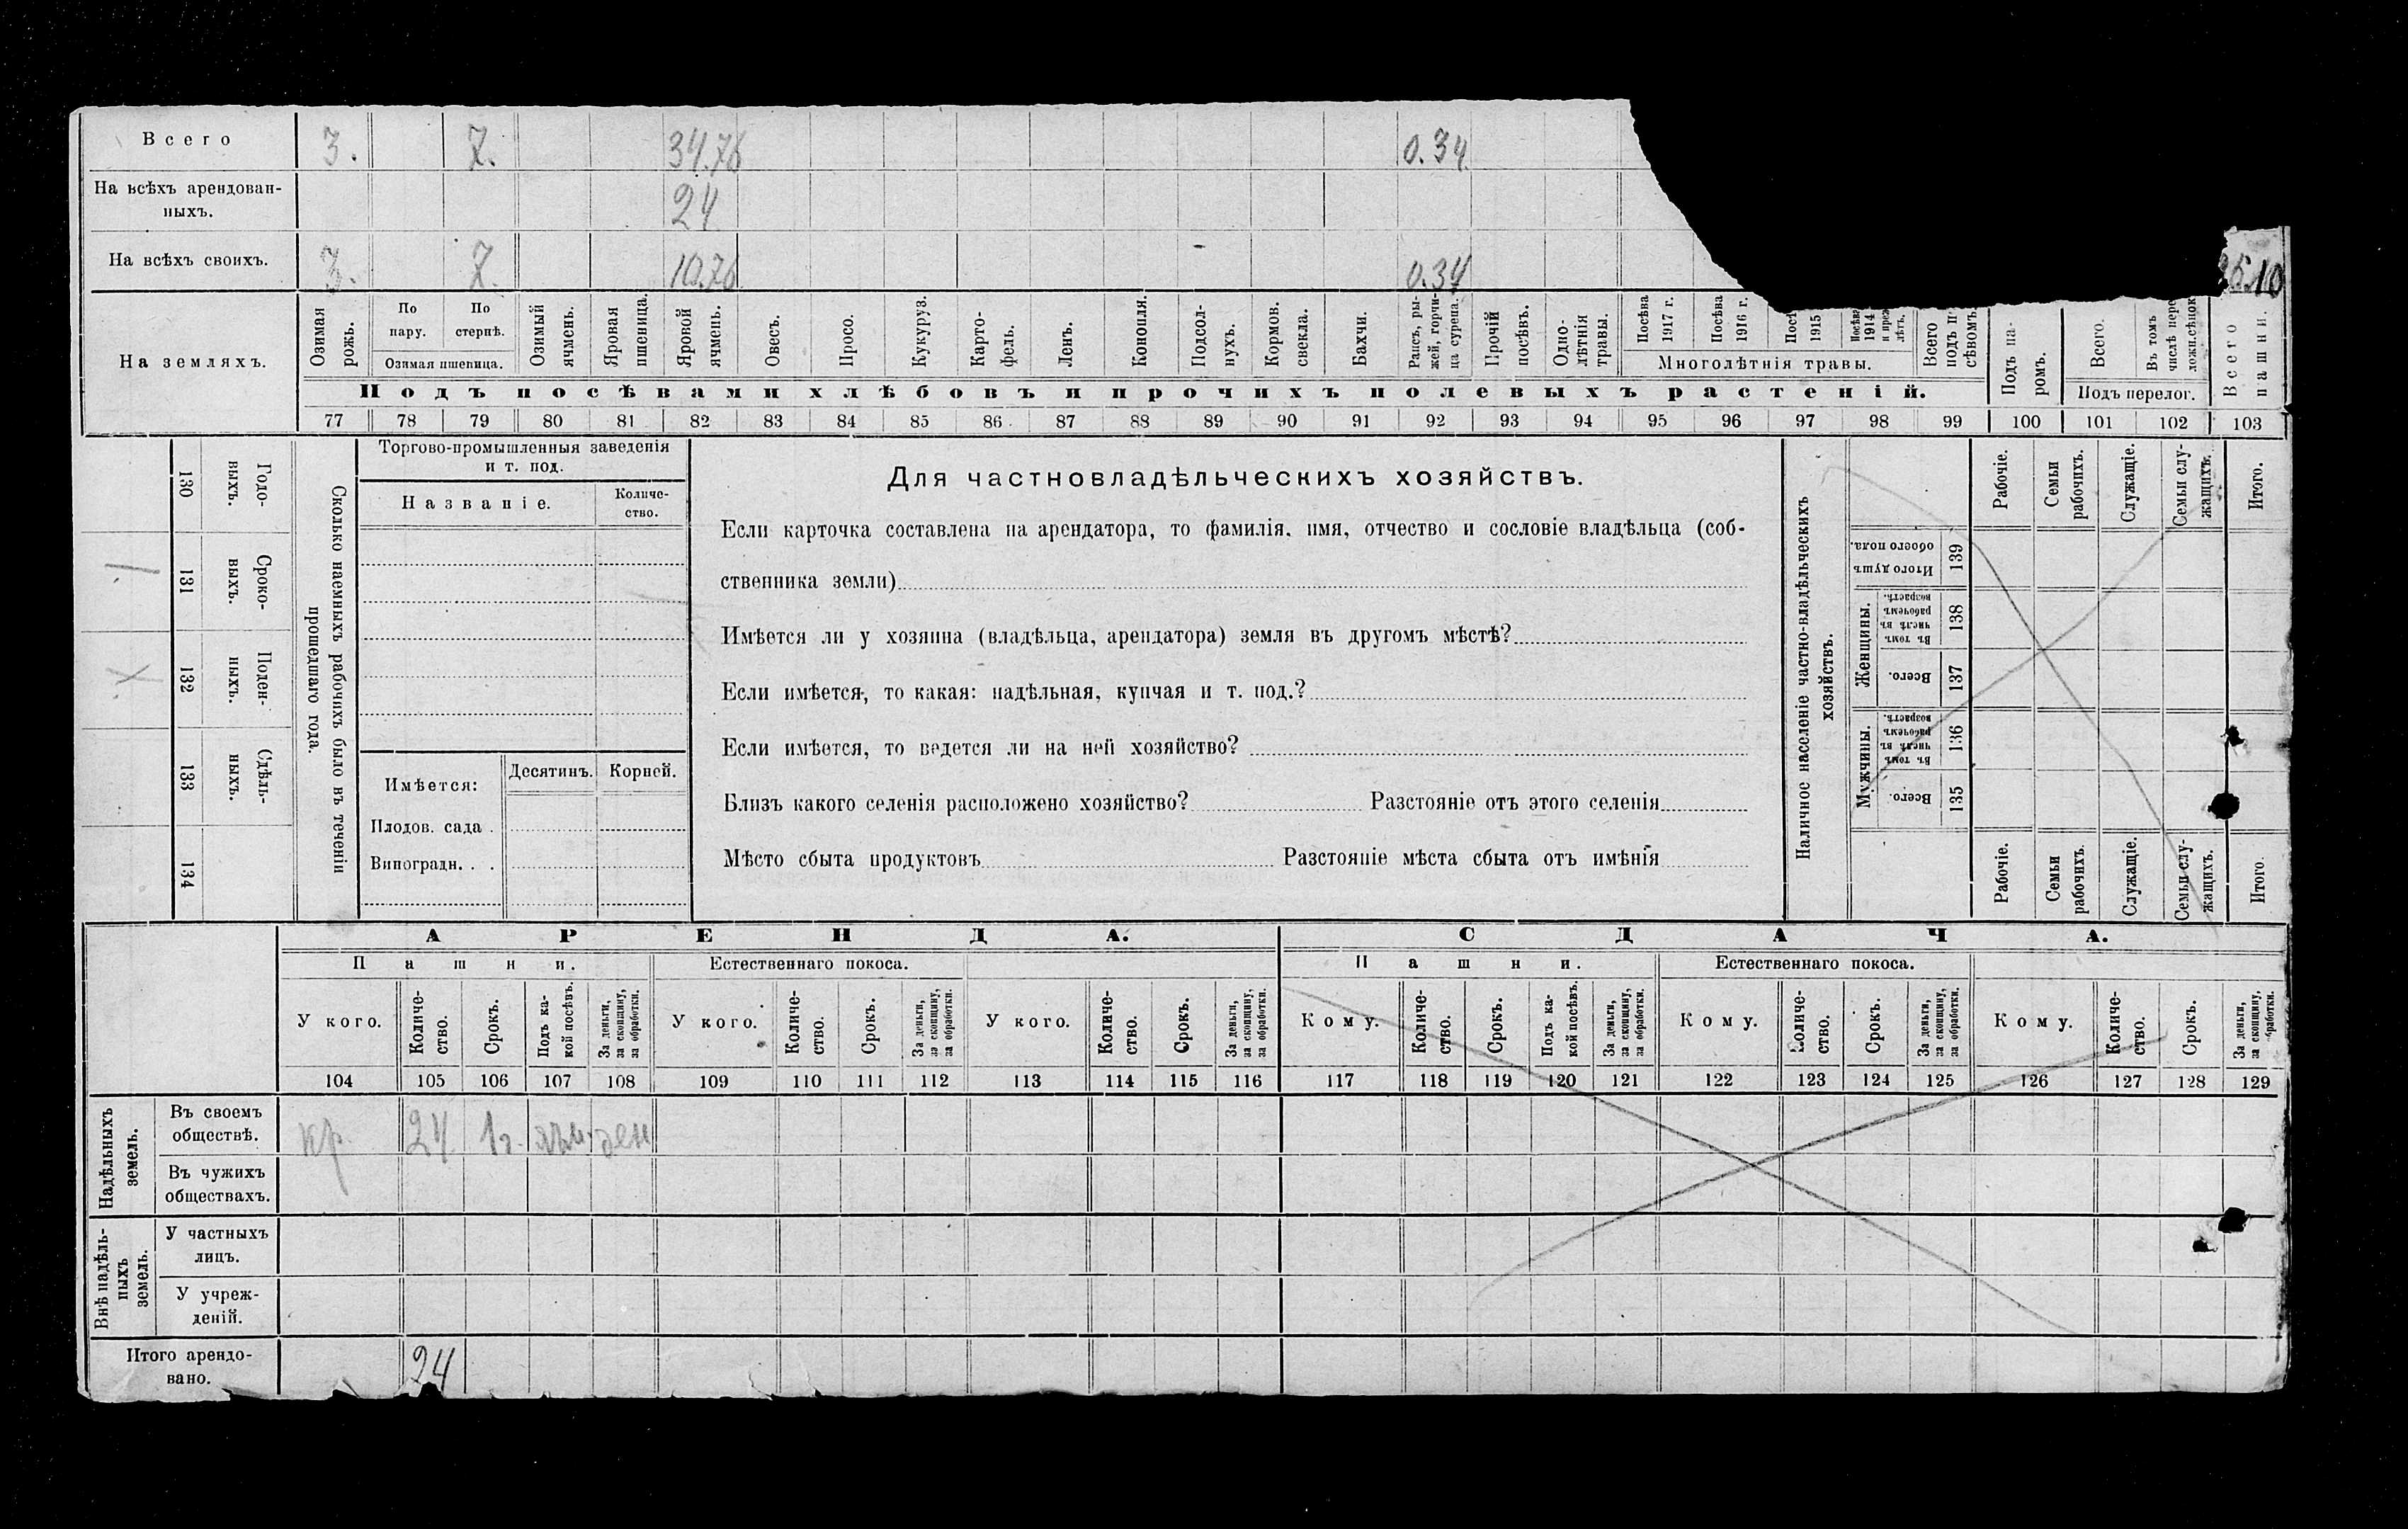 Всего 3. 7. 34.76 0.34
На всѣхъ арендован-
ныхъ. 24
На всѣхъ своихъ. 3. 7. 10.76 0.34 10
На земляхъ.
Озимая рожь.
По пару.
По стернѣ.
Озимая пшеница.
Озимый ячмень.
Яровая пшеница.
Яровой ячмень.
Овесъ.
Просо.
Кукуруз.
Карто-
фель.
Ленъ.
Конопля.
Подсол-
нухъ.
Кормов. свекла.
Бахчи.
Рапсъ, ры-
жей, горчи-
ца сурепа.
Прочій посѣвъ.
Одно-
лѣтнія травы.
Посѣва 1917 г.
Посѣва 1916 г.
1915
1914
лѣтъ.
Многолѣтнія травы.
Всего
подъ п
сѣвомъ
Подъ па-
ромъ.
Всего.
Въ томъ
числѣ пере
Подъ перелог.
Всего пашни.
Подъ посѣвами хлѣбовъ и прочихъ полевыхъ растеній.
77 78 79 80 81 82 83 84 85 86 87 88 89 90 91 92 93 94 95 96 97 98 99 100 101 102 103
130 131 132 133 134
Годо-
выхъ.
Сроко-
выхъ.
Поден-
ныхъ.
Сдѣль-
ныхъ.
Сколько наемныхъ рабочихъ было въ теченіи
прошедшаго года.
Торгово-промышленныя заведенія
и т. под.
Названіе.
Количе-
ство.
Имѣется: Десятинъ. Корней.
Плодов. сада .
Виноградн. . .
Для частновладѣльческихъ хозяйствъ.
Если карточка составлена на арендатора, то фамилія, имя, отчество и сословіе владѣльца (соб-
ственника земли)
Имѣется ли у хозяина (владѣльца, арендатора) земля въ другомъ мѣстѣ?
Если имѣется, то какая: надѣльная, купчая и т. под.?
Если имѣется, то ведется ли на ней хозяйство?
Близъ какого селенія расположено хозяйство? Разстояніе отъ этого селенія
Мѣсто сбыта продуктовъ Разстояніе мѣста сбыта отъ имѣнія
Наличное населеніе частно-владѣльческихъ
хозяйствъ.
Рабочіе.
Семьи рабочихъ.
Служащіе.
Семьи слу-
жащихъ.
Итого.
Итого душъ
обоего пола.
139
Женщины.
Въ томъ
числѣ въ
рабочемъ
возрастѣ.
138
Всего.
137
Мужчины.
Въ томъ
числѣ въ
рабочемъ
возрастѣ.
136
Всего.
135
Рабочіе.
Семьи рабочихъ.
Служащіе.
Семьи слу-
жащихъ.
Итого.
АРЕНДА. СДАЧА.
Пашни. Естественнаго покоса. Пашни. Естественнаго покоса.
У кого.
Количе-
ство.
Срокъ.
Подъ ка-
кой посѣвъ.
За деньги,
за скопщину,
за обработки.
У кого.
Количе-
ство.
Срокъ.
За деньги,
за скопщину,
за обработки.
У кого.
Количе-
ство.
Срокъ.
За деньги,
за скопщину,
за обработки.
Кому.
Количе-
ство.
Срокъ.
Подъ ка-
кой посѣвъ.
За деньги,
за скопщину,
за обработки.
Кому.
Количе-
ство.
Срокъ.
За деньги,
за скопщину,
за обработки.
Кому.
Количе-
ство.
Срокъ.
За деньги,
за скопщину,
обработки.
104 105 106 107 108 109 110 111 112 113 114 115 116 117 118 119 120 121 122 123 124 125 126 127 128 129
Надѣльныхъ
земель.
Въ своемъ
обществѣ. кр. 24 1г. ден
Въ чужихъ
обществахъ.
Внѣ надѣль-
ныхъ
земель.
У частныхъ
лицъ.
У учреж-
деній.
Итого арендо-
вано. 24